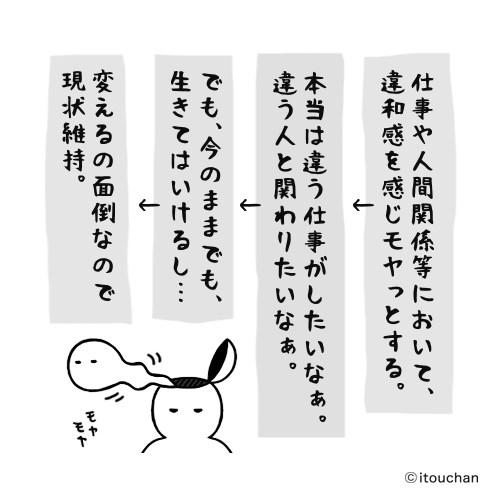 仕事や人間関係等において、
違和感を感じモヤっとする。
←
本当は違う仕事がしたいなぁ。
違う人と関わりたいなぁ。
←
でも、今のままでも、
生きてはいけるし…
←
変えるの面倒なので
現状維持。
モヤ
モヤ
©itouchan